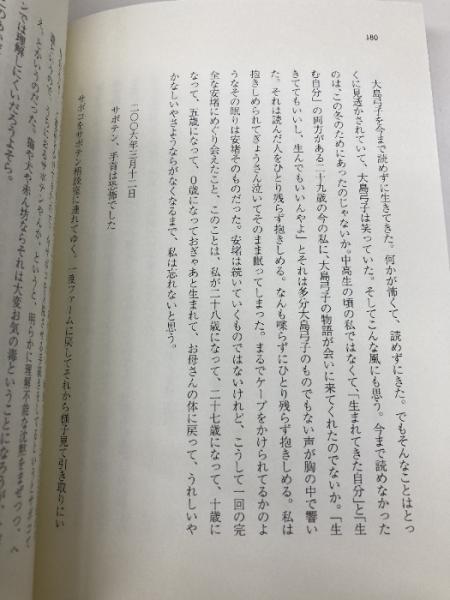 180
大島弓子を今まで読めずに生きてきた。何かが怖くて、読めずにきた。でもそんなことはとっ
くに見透かされていて、大島弓子は笑っていた。そしてこんな風にも思う。今まで読めなかった
のは、この冬のためにあったのじゃないか。中高生の頃の私ではなくて、「生まれてきた自分」と「生
む自分」の両方がある二十九歳の今の私に、大島弓子の物語が会いに来てくれたのでないか。「生
きてもいいし、生んでもいいんやよ」とそれは多分大島弓子のものでもない声が胸の中で響い
た。それは読んだ人をひとり残らず抱きしめる。なんも喋らずにひとり残らず抱きしめる。私は
抱きしめられてぎょうさん泣いてそのまま眠ってしまった。まるでケープをかけられてるかのよ
うなその眠りは安堵そのものだった。安堵は続いていくものではないけれど、こうして一回の完
全な安堵にめぐり会えたこと、このことは、私が二十八歳になって、二十七歳になって、十歳に
なって、五歳になって、0歳になっておぎゃあと生まれて、お母さんの体に戻って、うれしいや
かなしいやさようならがなくなるまで、私は忘れないと思う。
二〇〇六年三月十二日
サボテン、手首は恐怖でした
サボコをサボテン相談室に連れてゆく。一度ファームに戻してそれから様子見て引き取りにい
というと、明らかに理解不能な沈黙をまぜつつ、へ
え、そういうのだった。猫や犬や赤ん坊ならそれは大変お気の毒ということになろうが、
ンでは理解しにくいだろうよそら。